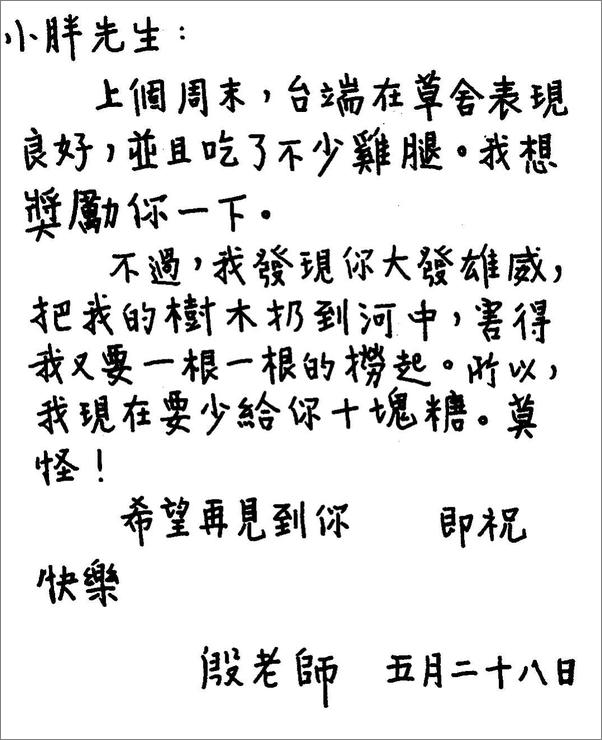 小胖先生：
上個周末，台端在草舍表現
良好，並且吃了不少雞腿。我想
獎勵你一下。
不過，我發現你大發雄威，
把我的樹木扔到河中，害得
我又要一根一根的撈起。所以，
我現在要少給你十塊糖。莫
怪！
希望再見到你 即祝
快樂
殷老師 五月二十八日